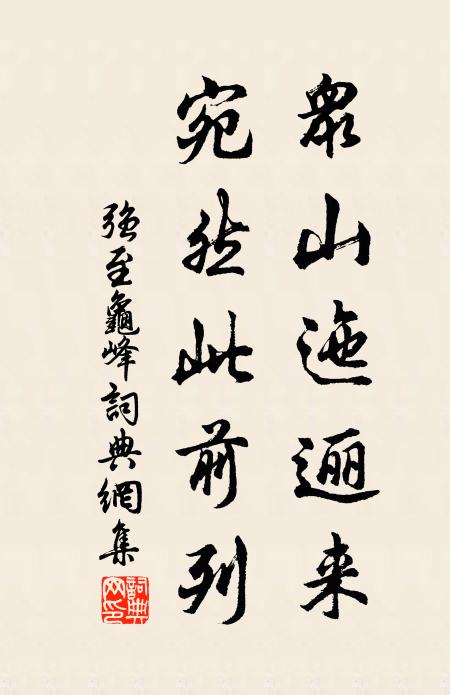 眾山迤逦来
宛然此前列
强至龜峰詞典網集
詞典网印